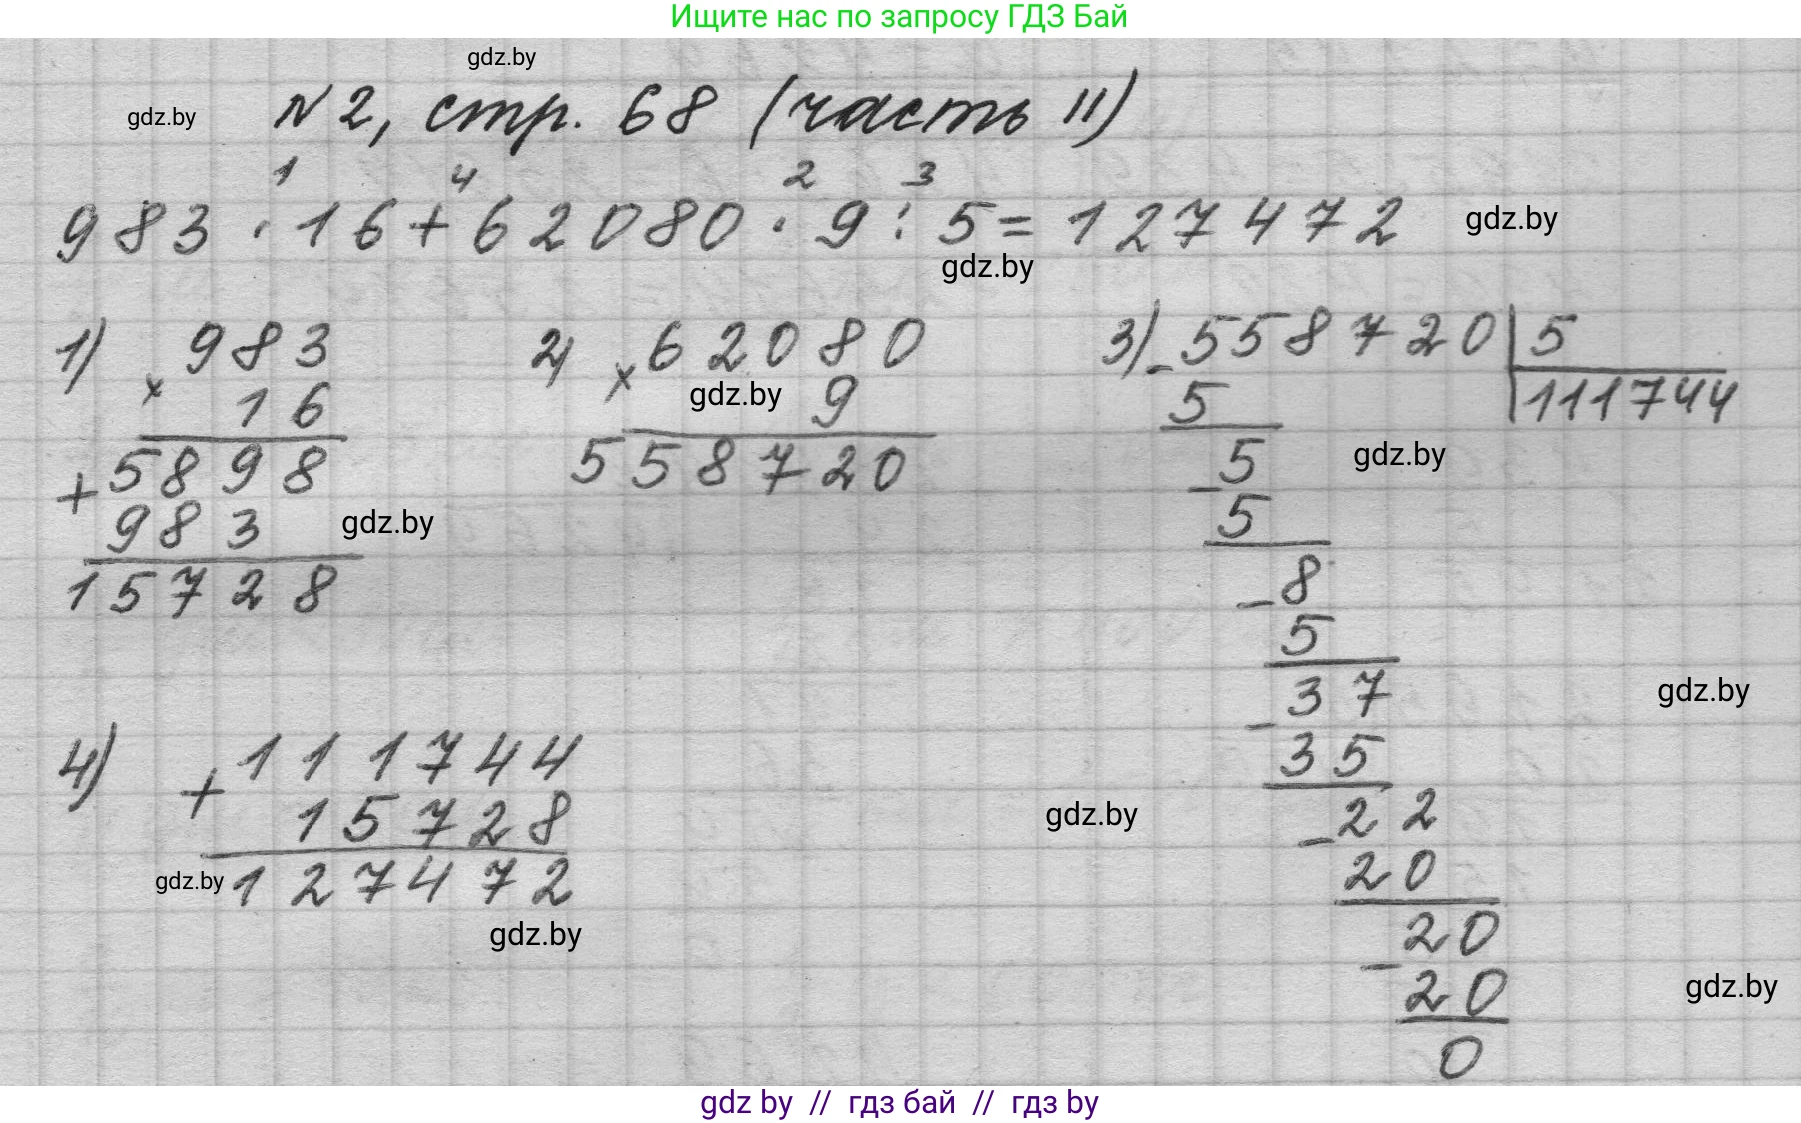 Ищите нас по запросу ГДЗ Бай
gdz.by
gdz.by
№2, стр. 68 (часть II)
1 4 2 3
983 · 16 + 62080 · 9 : 5 = 127472
gdz.by
gdz.by
1) 983
× 16
5898
+ 983
15728
gdz.by
2) × 62080
9
gdz.by
558720
3) - 558720 | 5
5 111744
- 5
5
- 8
5
- 37
35
- 22
20
- 20
20
0
gdz.by
gdz.by
4) + 111744
15728
127472
gdz.by
gdz.by
gdz.by
gdz.by
gdz by // гдз бай // гдз by